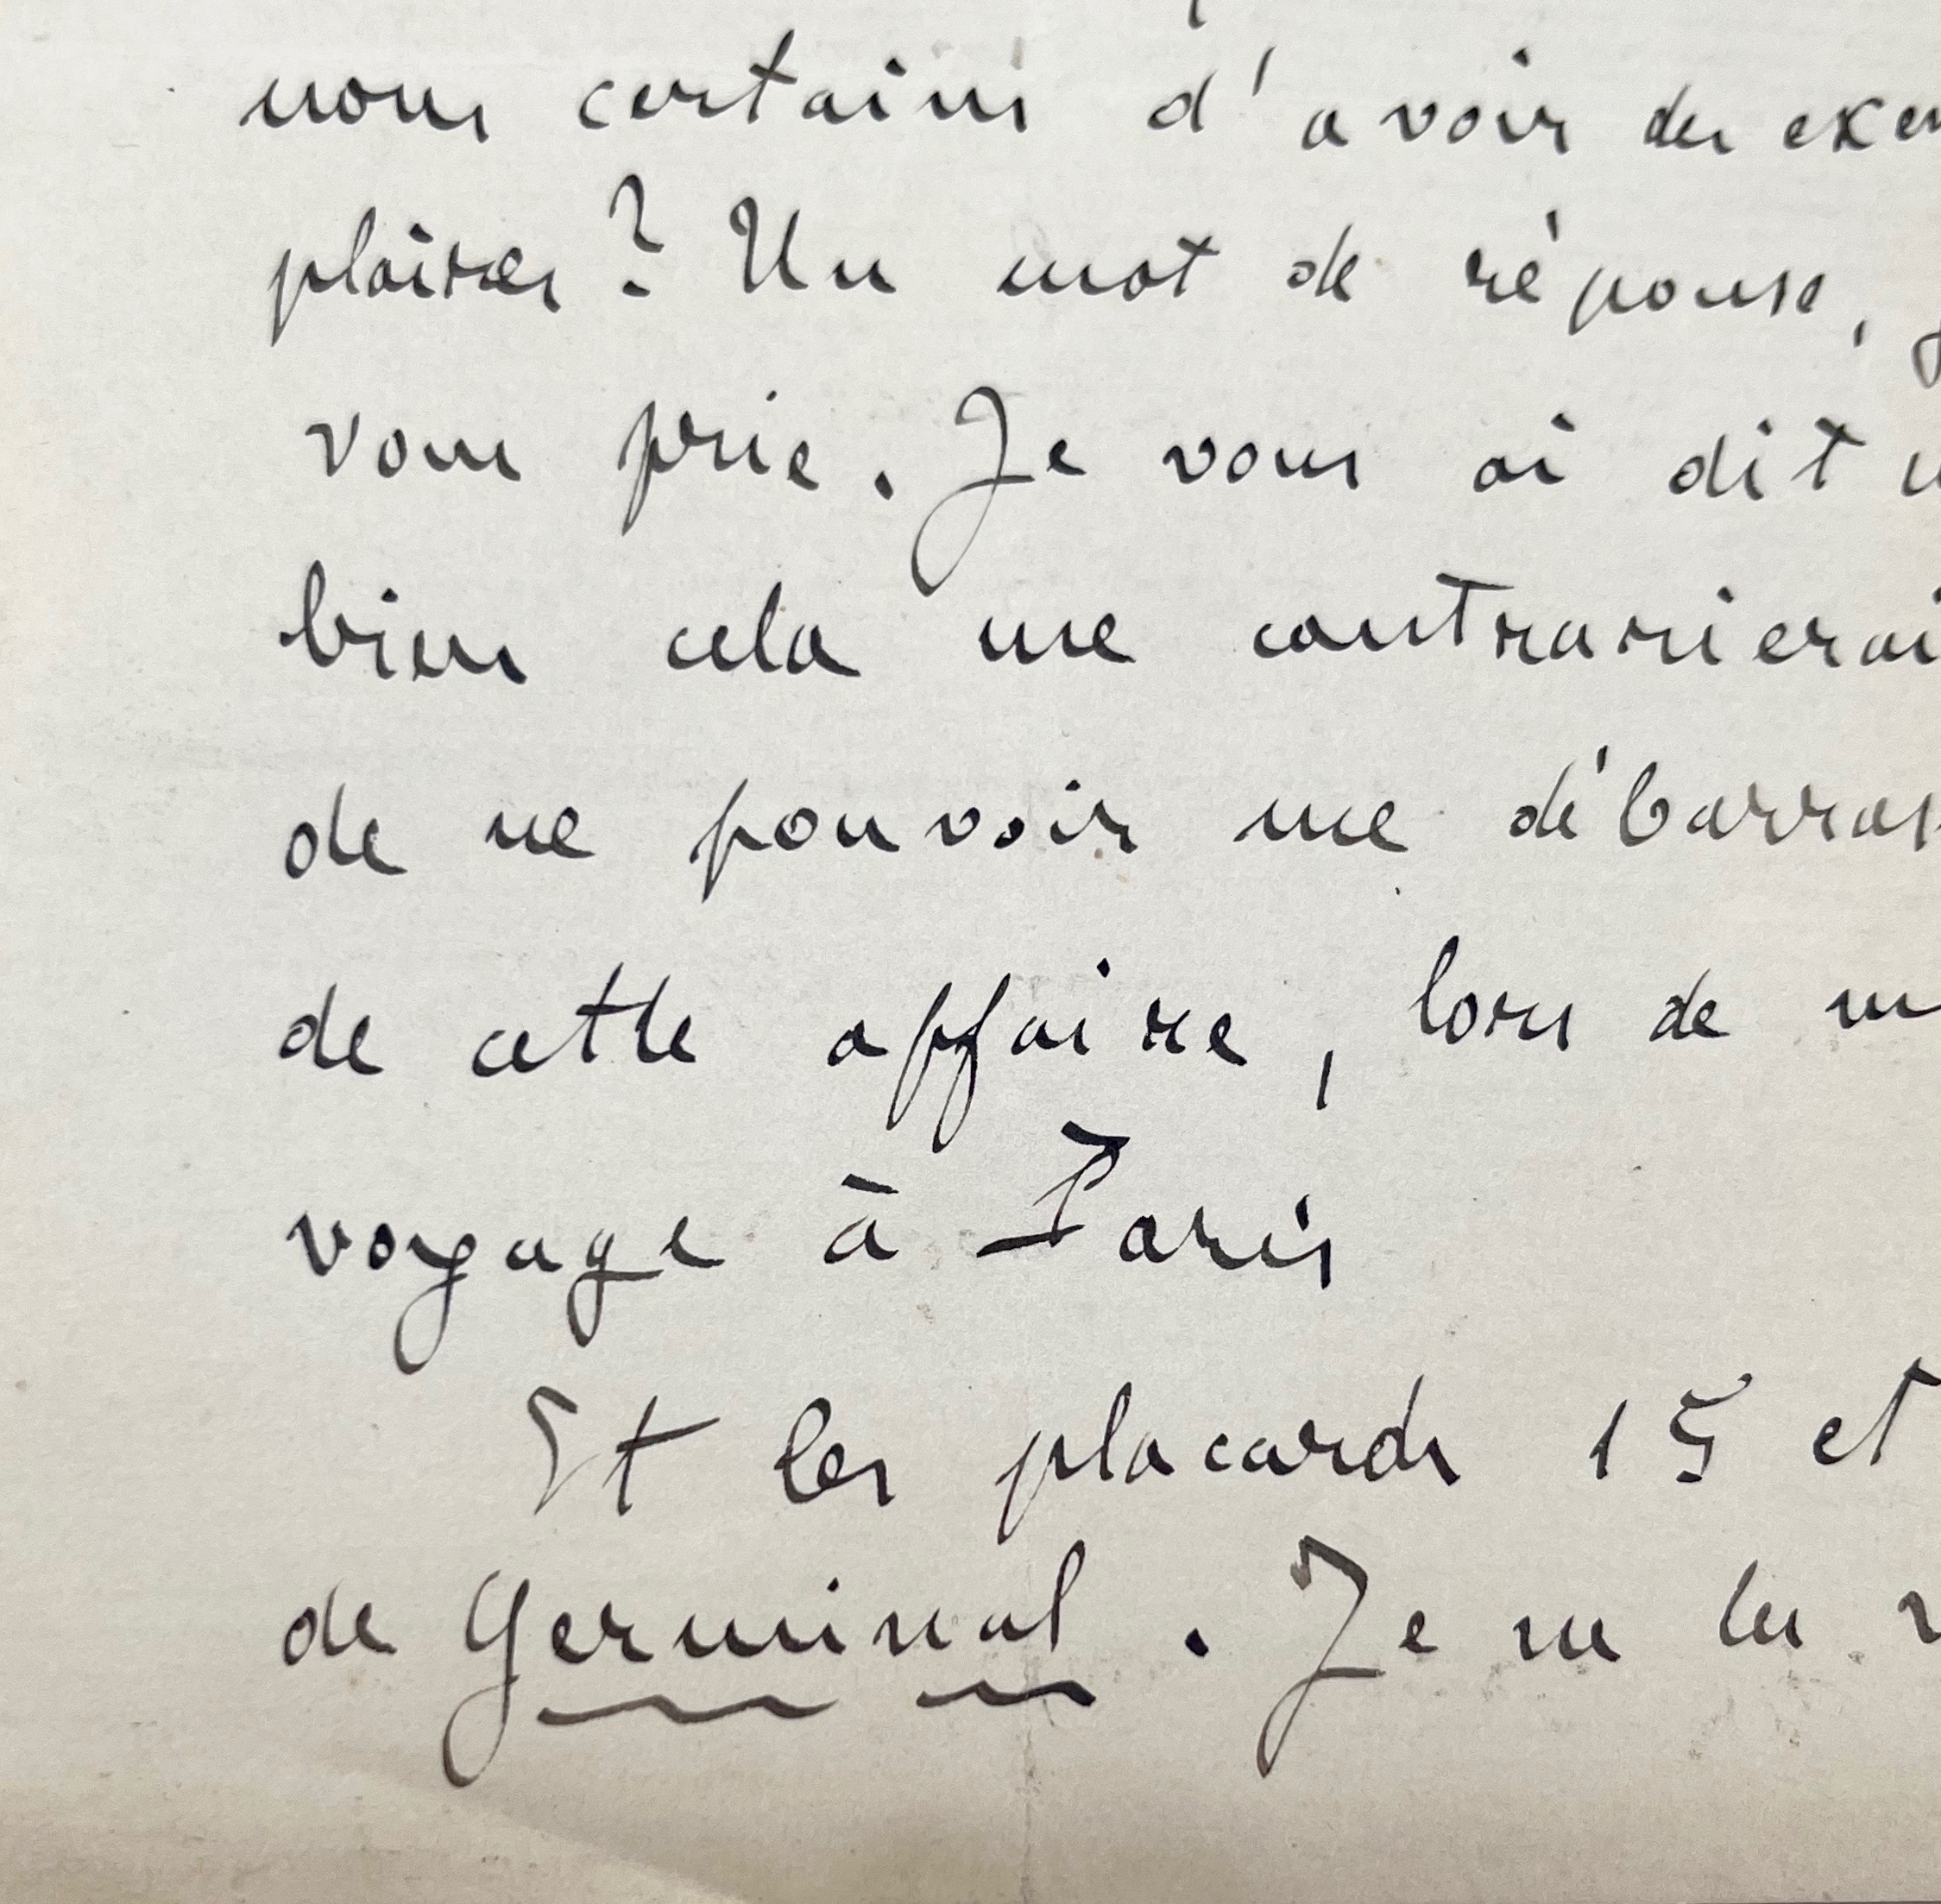 nous certains d'avoir des exem
plaires? Un mot de réponse, j
vous prie. Je vous ai dit
bien cela me contrarierai
de ne pouvoir me débarras
de cette affaire, lors de m
voyage à Paris
Et les placards 15 et
de Germinal. Je ne les